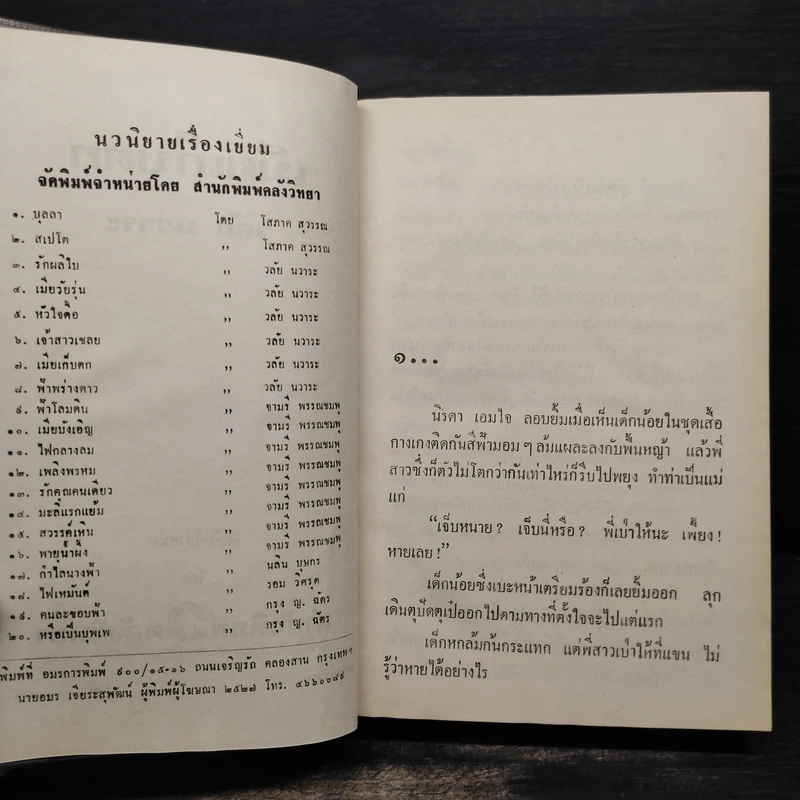 นวนิยายเรื่องเยี่ยม
จัดพิมพ์จำหน่ายโดย สำนักพิมพ์คลังวิทยา
๑. บุลลา โดย โสภาค สุวรรณ
๒. สเปโต ,, โสภาค สุวรรณ
๓. รักผลิใบ ,, วลัย นวาระ
๔. เมียวัยรุ่น ,, วลัย นวาระ
๕. หัวใจดื้อ ,, วลัย นวาระ
๖. เจ้าสาวเชลย ,, วลัย นวาระ
๗. เมียเก็บตก ,, วลัย นวาระ
๘. ฟ้าพร่างดาว ,, วลัย นวาระ
๙. ฟ้าโลมดิน ,, จามรี พรรณชมพู
๑๐. เมียบังเอิญ ,, จามรี พรรณชมพู
๑๑. ไฟกลางลม ,, จามรี พรรณชมพู
๑๒. เพลิงพรหม ,, จามรี พรรณชมพู
๑๓. รักคุณคนเดียว ,, จามรี พรรณชมพู
๑๔. มะลิแรกแย้ม ,, จามรี พรรณชมพู
๑๕. สวรรค์เหิน ,, จามรี พรรณชมพู
๑๖. พายุน้ำผึ้ง ,, จามรี พรรณชมพู
๑๗. กำไลนางฟ้า ,, นลิน บุษกร
๑๘. ไฟเหมันต์ ,, รอม วิศรุต
๑๙. คนละขอบฟ้า ,, กรุง ญ. ฉัตร
๒๐. หรือเป็นบุพเพ ,, กรุง ญ. ฉัตร
พิมพ์ที่ อมรการพิมพ์ ๙๐๐/๑๕-๑๖ ถนนเจริญรัถ คลองสาน กรุงเทพฯ
นายอมร เจียระสุพัฒน์ ผู้พิมพ์ผู้โฆษณา ๒๕๒๗ โทร. ๔๖๖๐๐๘๙
๑...
นิรดา เอมใจ ลอบยิ้มเมื่อเห็นเด็กน้อยในชุดเสื้อ
กางเกงติดกันสีฟ้ามอมๆ ล้มแผละลงกับพื้นหญ้า แล้วพี่
สาวซึ่งก็ตัวไม่โตกว่ากันเท่าไหร่ก็รีบไปพยุง ทำท่าเป็นแม่
แก่
“เจ็บหนาย? เจ็บนี่หรือ? พี่เป่าให้นะ เพี้ยง!
หายเลย!”
เด็กน้อยซึ่งเบะหน้าเตรียมร้องก็เลยยิ้มออก ลุก
เดินตุปัดตุเป๋ออกไปตามทางที่ตั้งใจจะไปแต่แรก
เด็กหกล้มก้นกระแทก แต่พี่สาวเป่าให้ที่แขน ไม่
รู้ว่าหายได้อย่างไร